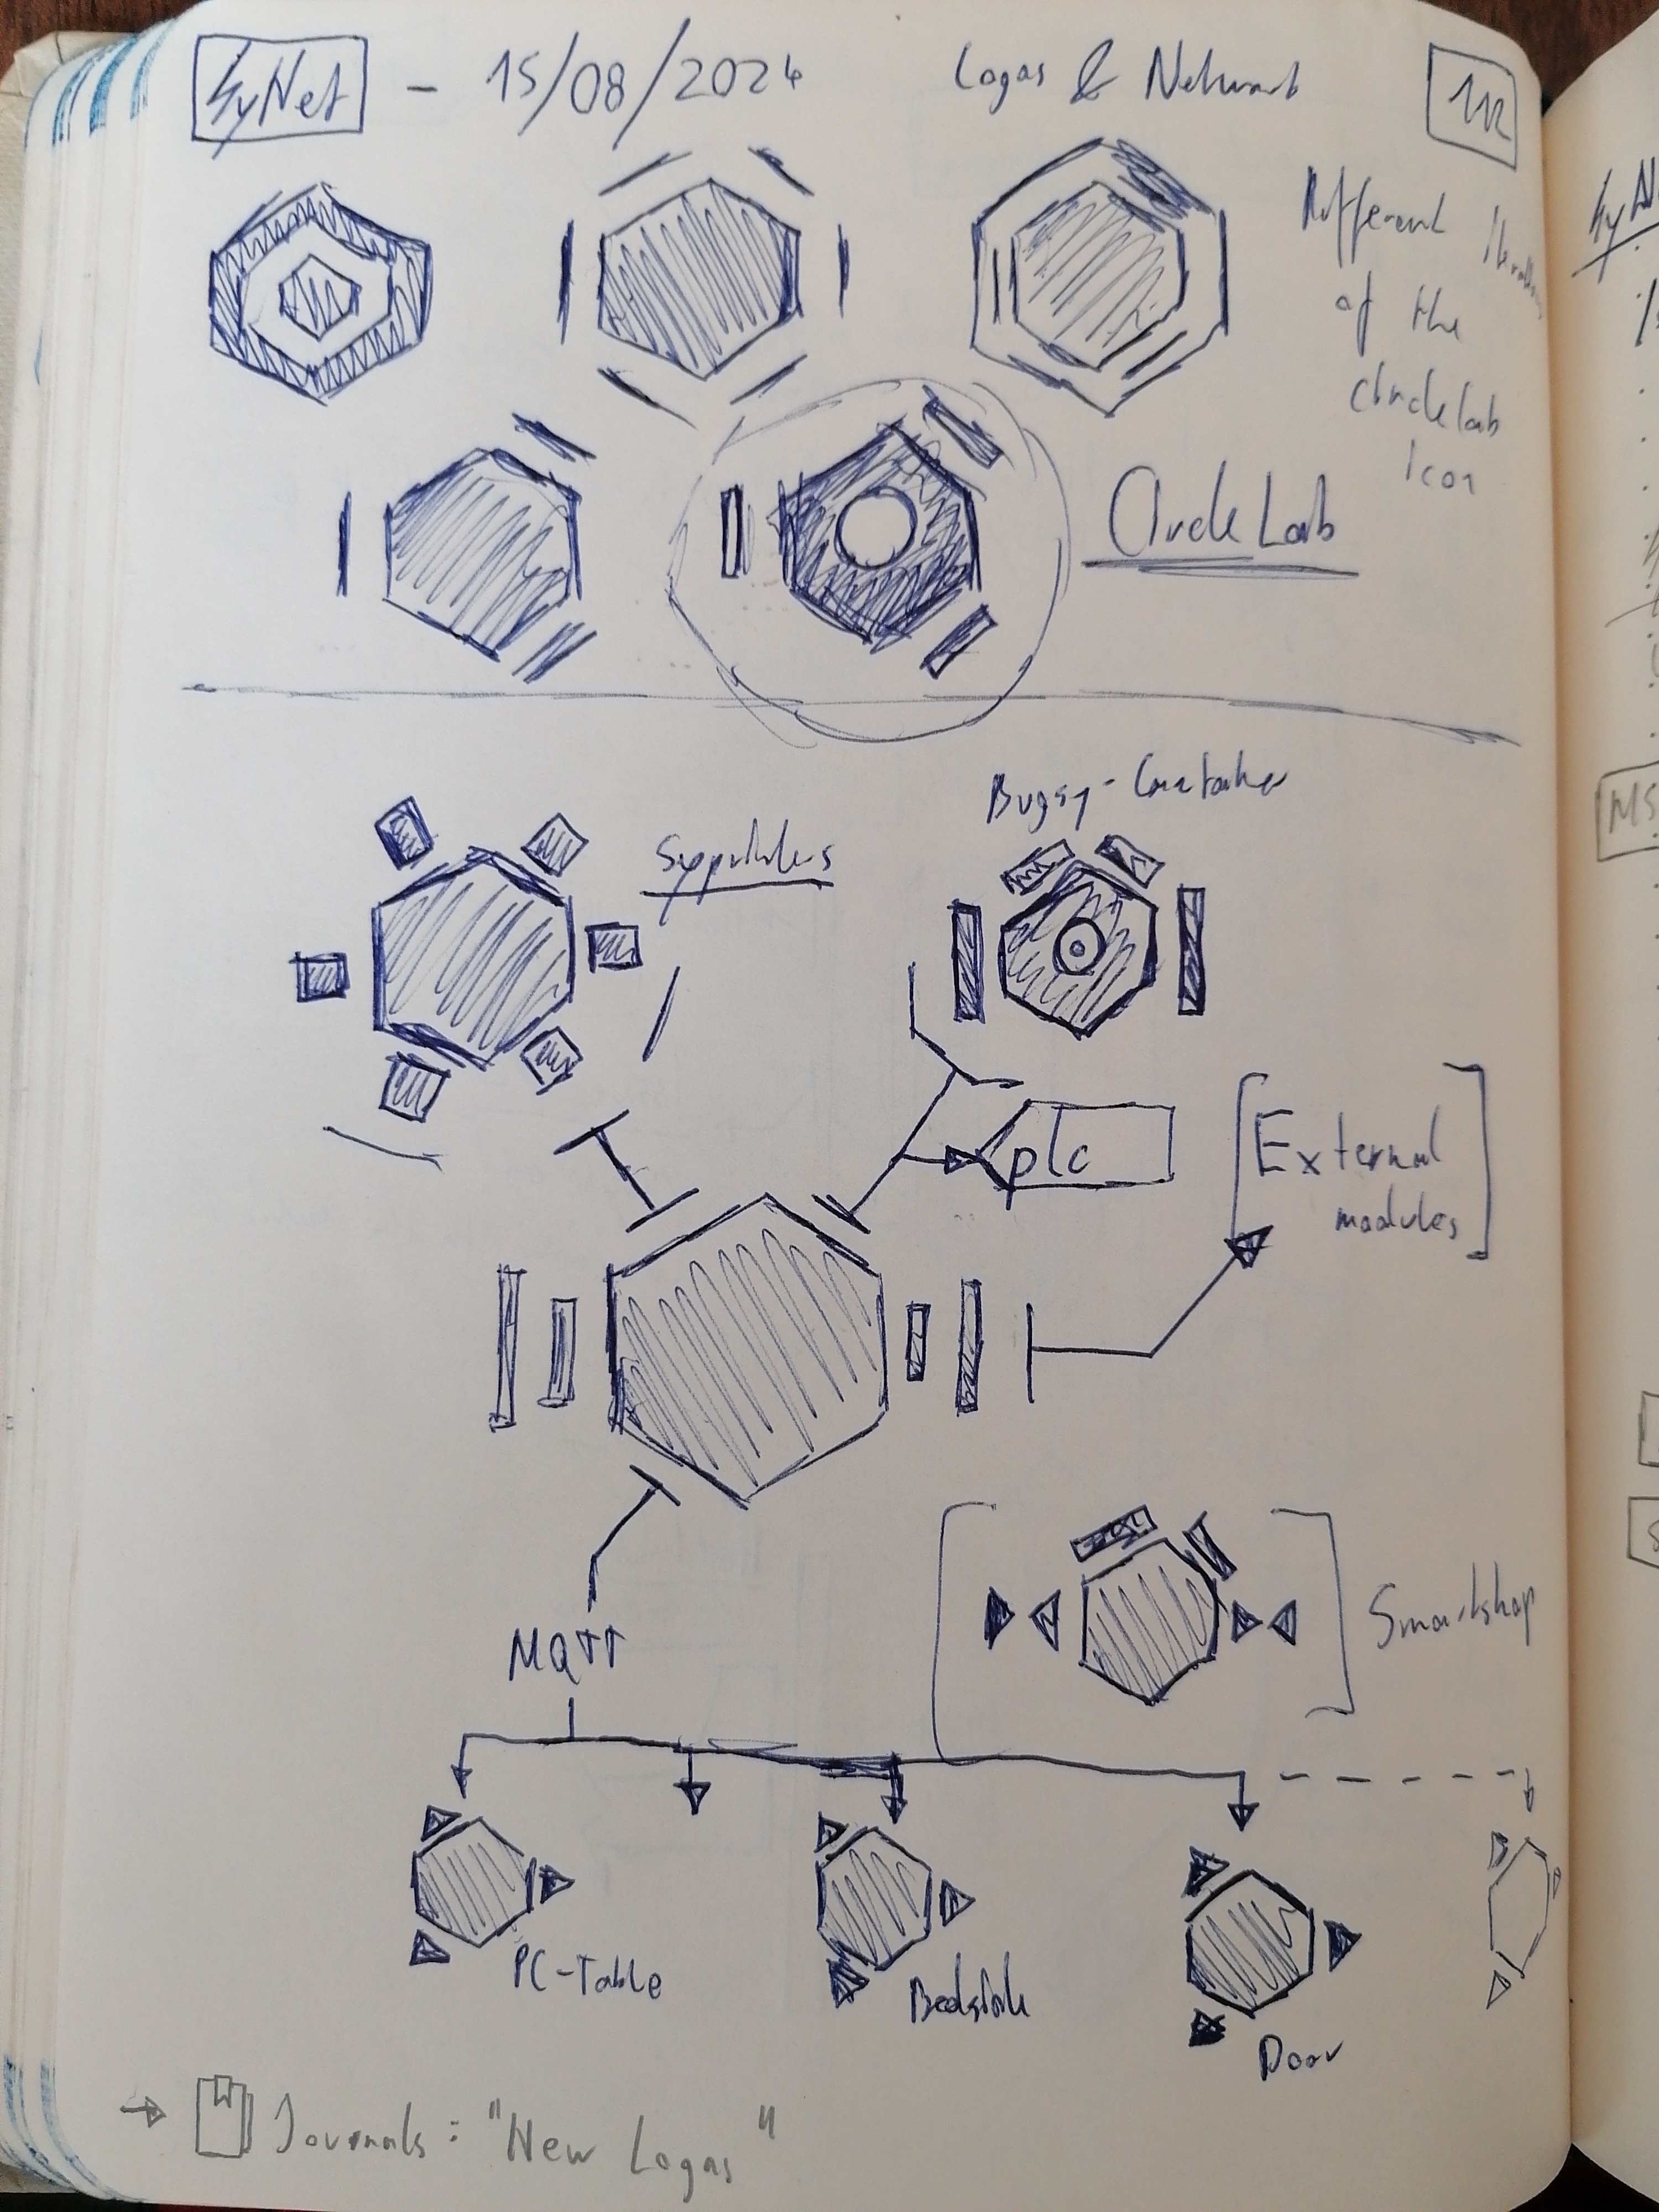 SyNet - 15/08/2024 Logos & Network
Different
of the
circlelab
Icon
CircleLab
Bugsy-
plc
[External
modules]
MQTT
Smartshop
PC-Table
Bedside
Door
→ Journals: "New Logos"
MS